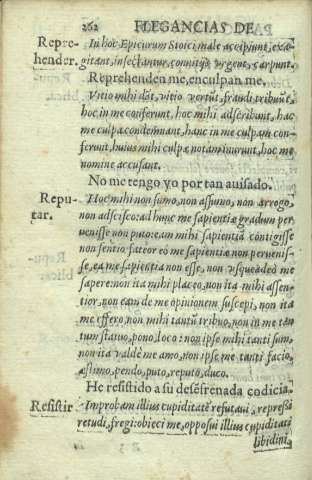 262 ELEGANCIAS DE
Repre-
hender.
In hoc Epicurum Stoici male accipiunt, exa-
gitant, insectantur, convitijs vrgent, carpunt.
Reprehenden me, enculpan me.
Vitio mihi dãt, vitio vertũt, fraudi tribuũt,
hoc in me conferunt, hoc mihi adscribunt, hac
me culpa condemnant, hanc in me culpam con-
ferunt, huius mihi culpæ notam inurunt, hoc me
nomine accusant.
No me tengo yo por tan auisado.
Repu-
tar.
Hoc mihi non sumo, non assumo, non arrogo,
non adscisco: ad hunc me sapientiæ gradum per
uenisse non puto: eam mihi sapientiã contigisse
non sentio fateor eò me sapientiæ non peruenis-
se, ea me sapientia non esse, non vsqueadeò me
sapere: non ita mihi placeo, non ita mihi assen-
tior, non eam de me opinionem suscepi, non ita
me effero, non mihi tantũ tribuo, non in me tẽn
tum statuo, pono, loco: non ipse mihi tanti sum,
non ita valdè me amo, non ipse me tanti facio,
æstimo, pendo, puto, reputo, duco.
He resistido a su desenfrenada codicia.
Resistir
Improbam illius cupiditatẽ refutaui, repressi
retudi, fregi: obieci me, opposui illius cupiditati
libidini,